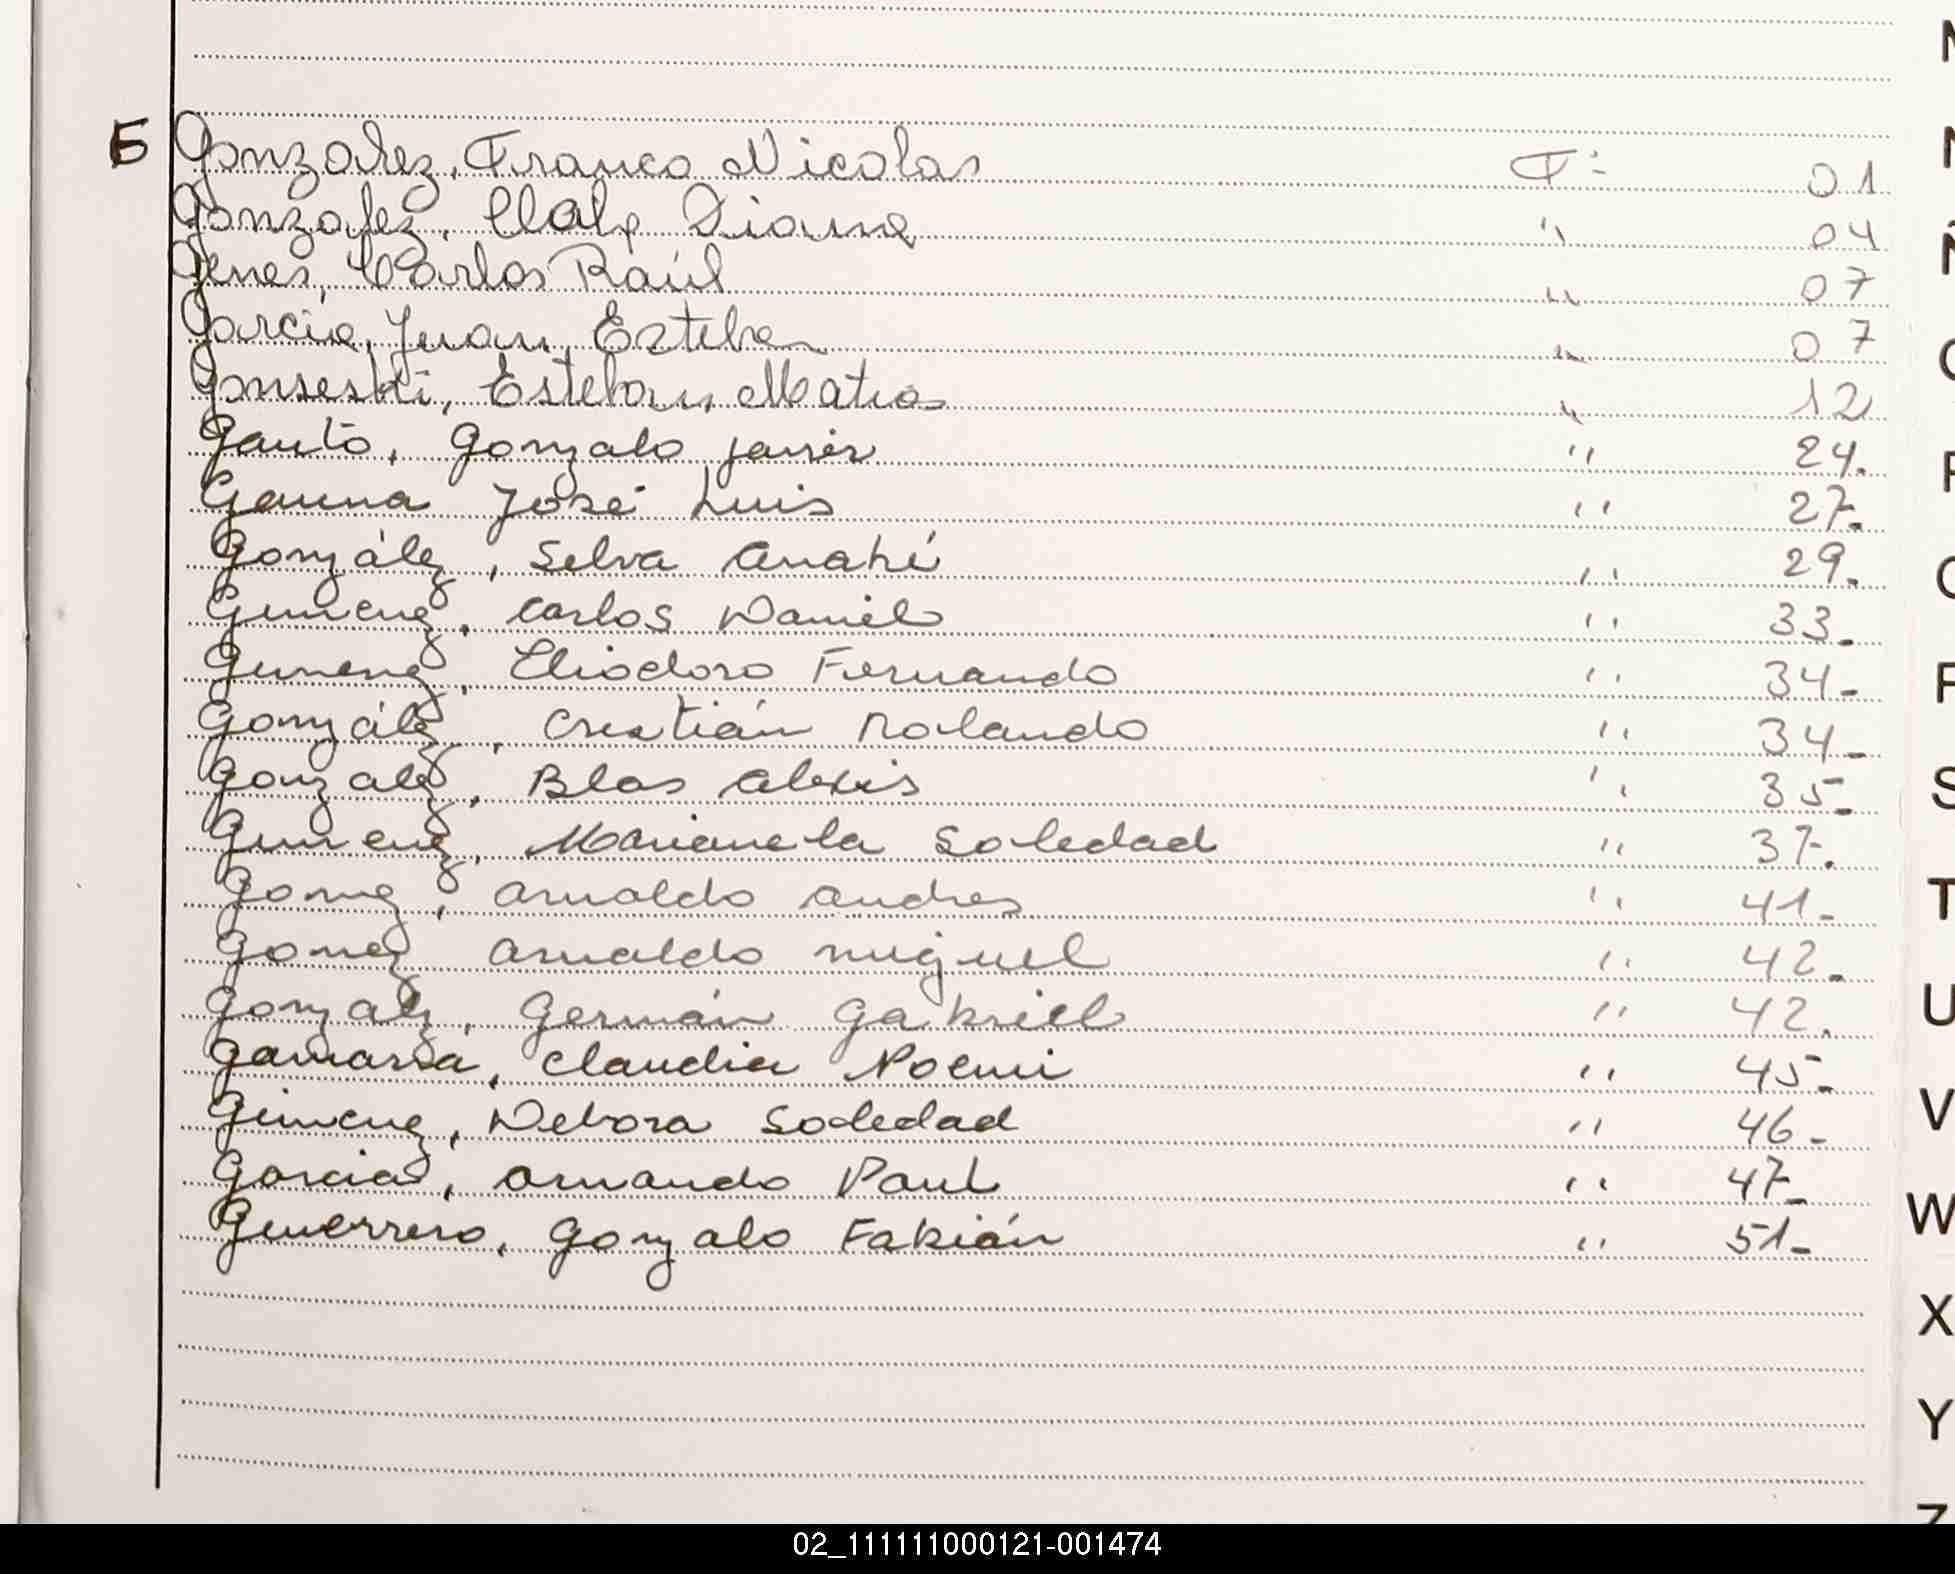 G Gonzalez, Franco Nicolas F: 01
Gonzalez, Diana " 04
Genes, Carlos Raúl " 07
Garcia, Juan Esteban " 07
Esteban Matias " 12
Gauto, Gonzalo Javier " 24.
Gauna José Luis " 27.
González, Selva Anahí " 29.
Gimenez, Carlos Daniel " 33.
Gimenez, Eliodoro Fernando " 34-
González, Cristián Rolando " 34-
Gonzalez, Blas Alexis " 35-
Gimenez, Marianela Soledad " 37.
Gomez, Arnaldo Andres " 41-
Gomez Arnaldo Miguel " 42.
Gonzalez, Germán Gabriel " 42.
Gamarra, Claudia Noemi " 45.
Gimenez, Debora Soledad " 46-
Garcia, Armando Paul " 47-
Guerrero, Gonzalo Fabián " 51-
Ñ
O
P
Q
R
S
T
U
V
W
X
Y
Z
02_111111000121-001474